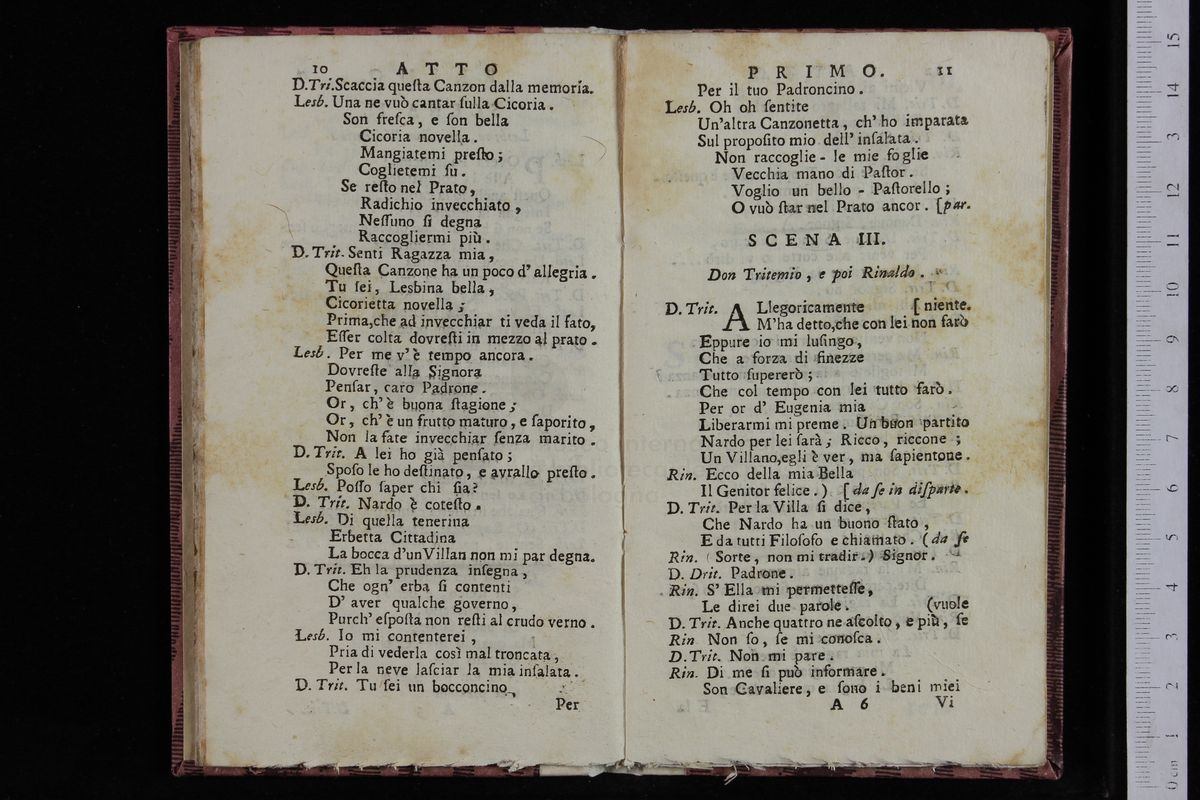 10 ATTO
D.Tri.Scaccia queſta Canzon dalla memoria.
Lesb. Una ne vuò cantar ſulla Cicoria.
Son freſca, e ſon bella
Cicoria novella.
Mangiatemi preſto;
Coglietemi ſu.
Se reſto nel Prato,
Radichio invecchiato,
Neſſuno ſi degna
Raccogliermi più.
D. Trit. Senti Ragazza mia,
Queſta Canzone ha un poco d'allegria.
Tu ſei, Lesbina bella,
Cicorietta novella;
Prima,che ad invecchiar ti veda il fato,
Eſſer colta dovreſti in mezzo al prato.
Lesb. Per me v'è tempo ancora.
Dovreſte alla Signora
Penſar, caro Padrone.
Or, ch'è buona ſtagione;
Or, ch'è un frutto maturo, e ſaporito,
Non la fate invecchiar ſenza marito.
D. Trit. A lei ho già penſato;
Spoſo le ho deſtinato, e avrallo preſto.
Lesb. Poſſo ſaper chi ſia?
D. Trit. Nardo è coteſto.
Lesb. Di quella tenerina
Erbetta Cittadina
La bocca d'un Villan non mi par degna.
D. Trit. Eh la prudenza inſegna,
Che ogn' erba ſi contenti
D' aver qualche governo,
Purch' eſpoſta non reſti al crudo verno.
Lesb. Io mi contenterei,
Pria di vederla così mal troncata,
Per la neve laſciar la mia inſalata.
D. Trit. Tu ſei un bocconcino,
Per
PRIMO. 11
Per il tuo Padroncino.
Lesb. Oh oh ſentite
Un'altra Canzonetta, ch'ho imparata
Sul propoſito mio dell' inſalata.
Non raccoglie - le mie foglie
Vecchia mano di Paſtor.
Voglio un bello - Paſtorello;
O vuò ſtar nel Prato ancor. [par.
SCENA III.
Don Tritemio, e poi Rinaldo.
D. Trit. ALlegoricamente [niente.
M'ha detto,che con lei non farò
Eppure io mi luſingo,
Che a forza di finezze
Tutto ſupererò;
Che col tempo con lei tutto farò.
Per or d' Eugenia mia
Liberarmi mi preme. Un buon partito
Nardo per lei ſarà; Ricco, riccone;
Un Villano,egli è ver, ma ſapientone.
Rin. Ecco della mia Bella
Il Genitor felice.) [da ſe in diſparte.
D. Trit. Per la Villa ſi dice,
Che Nardo ha un buono ſtato,
E da tutti Filoſofo e chiamato. (da ſe
Rin. (Sorte, non mi tradir.) Signor.
D. Drit. Padrone.
Rin. S' Ella mi permetteſſe,
Le direi due parole. (vuole
D. Trit. Anche quattro ne aſcolto, e più, ſe
Rin Non ſo, ſe mi conoſca.
D. Trit. Non mi pare.
Rin. Di me ſi può informare.
Son Cavaliere, e ſono i beni miei
A 6 Vi